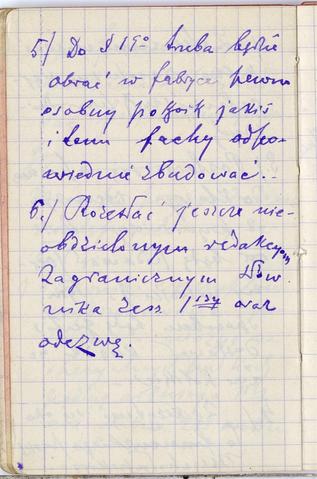 5/ Do § 19º trzeba będzie
obrać w fabryce pewien
osobny pokoik jakiś
i temu fachy odpo-
wiednie zbudować..
6./ Rozesłać jeszcze nie-
obdzielonym redakcyom
zagranicznym Słow
nika Zesz 1szy oraz
odezwę.